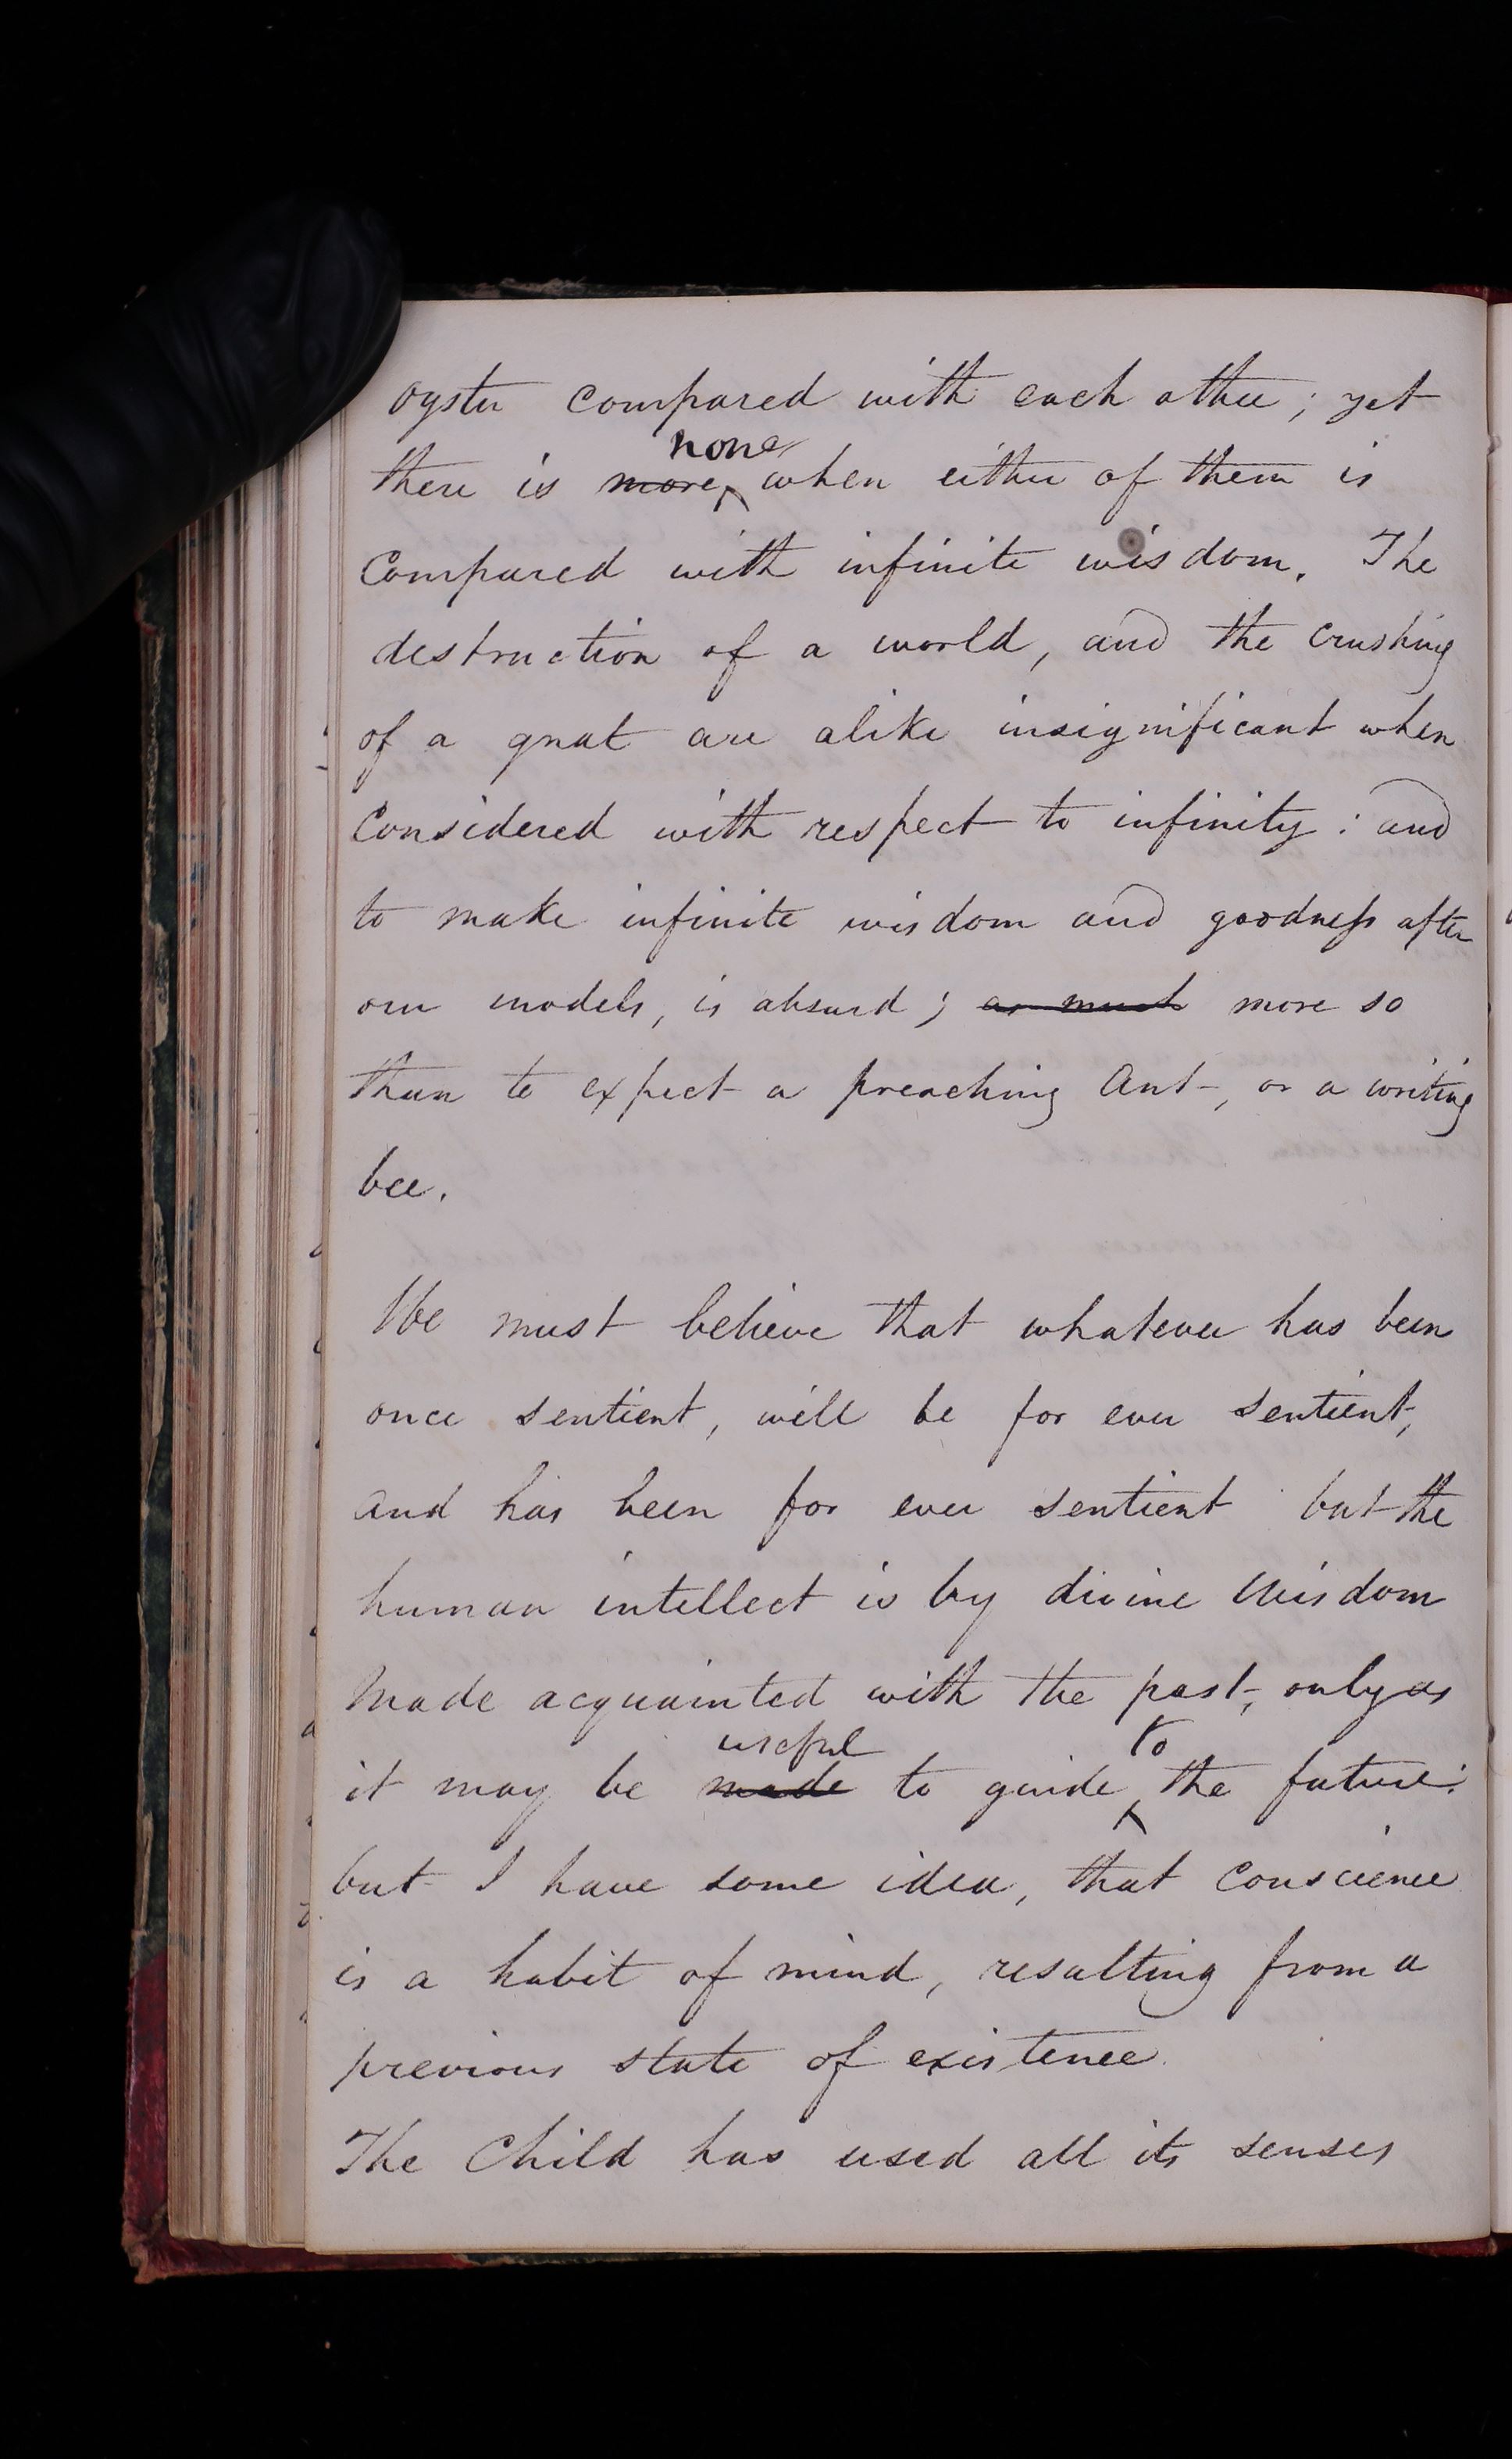 oyster compared with each other; yet
none
there is more, when either of them is
Compared with infinite wisdom. The
destruction of a world, and the crushing
of a gnat are alike insignificant when
Considered with respect to infinity: and
to make infinite wisdom and goodness after
our models, is absurd; as much more so
than to expect a preaching Ant, or a writing
bee.
We must believe that whatever has been
once sentient, will be for ever sentient,
and has been for ever sentient but the
human intellect is by divine Wisdom
made acquainted with the past, only as
useful to
it may be made to guide the future:
but I have some idea, that Conscience
is a habit of mind, resulting from a
previous state of existence.
The Child has used all its senses